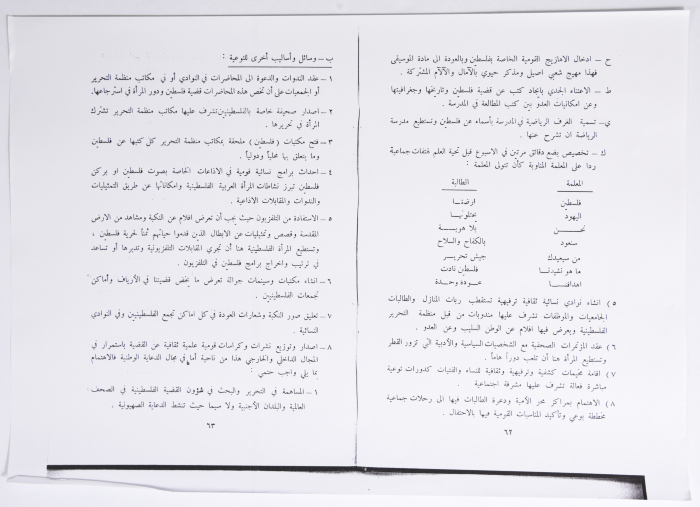 ح – ادخال الاهازيج القومية الخاصة بفلسطين وبالعودة الى مادة الموسيقى
فهذا مهرج شعبي اصيل ومذكر حيوي بالآمال والآلام المشتركة .
ط – الاعتناء الجدي بايجاد كتب عن قضية فلسطين وتاريخها وجغرافيتها
وعن امكانيات العدو بين كتب المطالعة في المدرسة .
ي – تسمية الغرف الرياضية في المدرسة بأسماء عن فلسطين وتستطيع مدرسة
الرياضة ان تشرح عنها .
ك – تخصيص بضع دقائق مرتين في الاسبوع قبل تحية العلم لهتافات جماعية
ردا على المعلمة المناوبة كأن تتولى المعلمة :
المعلمة الطالبة
فلسطين ارضنا
اليهود يحتلونها
نحن بلا هوية
سنعود بالكفاح والسلاح
من سيعيدك جيش تحرير
ما هو نشيدنا فلسطين نادت
اهدافنا عودة وحدة
٥) انشاء نوادي نسائية ثقافية ترفيهية تستقطب ربات المنازل والطالبات
الجامعيات والموظفات تشرف عليها مندوبات من قبل منظمة التحرير
الفلسطينية ويعرض فيها افلام عن الوطن السليب وعن العدو .
٦) عقد المؤتمرات الصحفية مع الشخصيات السياسية والأدبية التي تزور القطر
وتستطيع المرأة هنا أن تلعب دوراً هاماً .
٧) اقامة مخيمات كشفية وترفيهية وثقافية للنساء والفتيات كدورات توعية
مباشرة فعالة تشرف عليها مشرفة اجتماعية .
٨) الاهتمام بمراكز محو الأمية ودعوة الطالبات فيها الى رحلات جماعية
مخططة بوعي وتأكيد المناسبات القومية فيها بالاحتفال .
٦٢
ب – وسائل وأساليب أخرى للتوعية :
١ – عقد الندوات والدعوة الى المحاضرات في النوادي أو في مكاتب منظمة التحرير
أو الجمعيات على أن تخص هذه المحاضرات قضية فلسطين ودور المرأة في استرجاعها.
٢ – اصدار صحيفة خاصة بالفلسطينيين تشرف عليها مكاتب منظمة التحرير تشترك
المرأة في تحريرها .
٣ – فتح مكتبات (فلسطين) ملحقة بمكاتب منظمة التحرير كل كتبها عن فلسطين
وما يتعلق بها محلياً ودولياً .
٤ – احداث برامج نسائية قومية في الاذاعات الخاصة بصوت فلسطين او بركن
فلسطين تبرز نشاطات المرأة العربية الفلسطينية وامكاناتها عن طريق التمثيليات
والندوات والمقابلات الاذاعية .
٥ – الاستفادة من التلفزيون حيث يجب أن تعرض افلام عن النكبة ومشاهد من الارض
المقدسة وقصص وتمثيليات عن الابطال الذين قدموا حياتهم ثمناً لحرية فلسطين ،
وتستطيع المرأة الفلسطينية هنا أن تجري المقابلات التلفزيونية وتديرها أو تساعد
في ترتيب واخراج برامج فلسطين في التلفزيون .
٦ – انشاء مكتبات وسينمات جوالة تعرض ما يخص قضيتنا في الأرياف وأماكن
تجمعات الفلسطينيين .
٧ – تعليق صور النكبة وشعارات العودة في كل اماكن تجمع الفلسطينيين وفي النوادي
النسائية .
٨ – اصدار وتوزيع نشرات وكراسات قومية علمية ثقافية عن القضية باستمرار في
المجال الداخلي والخارجي هذا من ناحية أما في مجال الدعاية الوطنية فالاهتمام
بما يلي واجب حتمي :
١ – المساهمة في التحرير والبحث في شؤون القضية الفلسطينية في الصحف
العالمية والبلدان الأجنبية ولا سيما حيث تنشط الدعاية الصهيونية .
٦٣